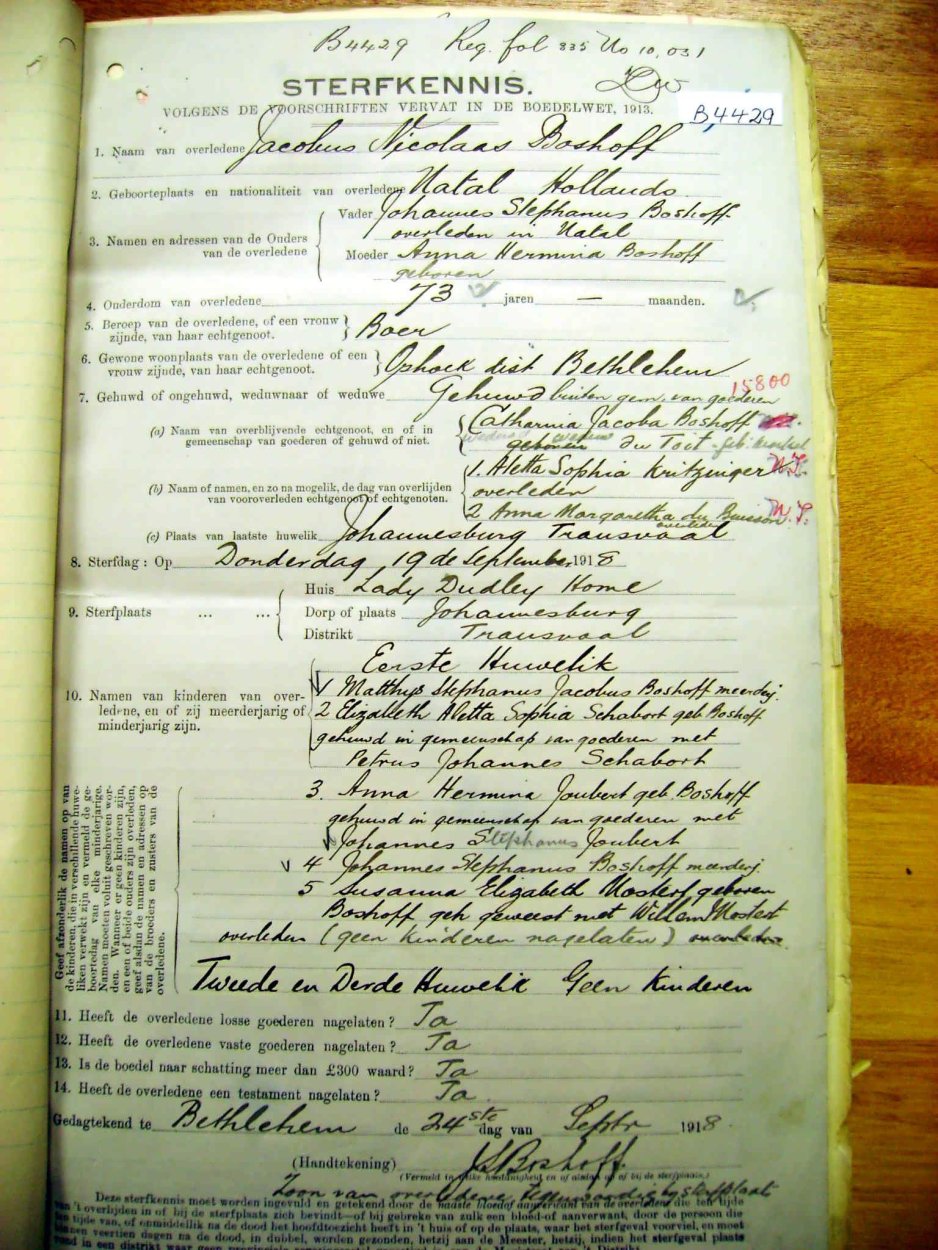 B4429 Reg. fol 835 No 10,031
STERFKENNIS.
VOLGENS DE VOORSCHRIFTEN VERVAT IN DE BOEDELWET, 1913.
B4429
1. Naam van overledene Jacobus Nicolaas Boshoff
2. Geboorteplaats en nationaliteit van overledene Natal Hollands
3. Namen en adressen van de Ouders van de overledene
Vader Johannes Stephanus Boshoff
overleden in Natal
Moeder Anna Hermina Boshoff
geboren
4. Ouderdom van overledene 73 jaren — maanden.
5. Beroep van de overledene, of een vrouw zijnde, van haar echtgenoot. Boer
6. Gewone woonplaats van de overledene of een vrouw zijnde, van haar echtgenoot. Ophoek dist Bethlehem
15800
7. Gehuwd of ongehuwd, weduwnaar of weduwe Gehuwd buiten gem. van goederen
(a) Naam van overblijvende echtgenoot, en of in gemeenschap van goederen of gehuwd of niet.
Catharina Jacoba Boshoff
geboren du Toit geb.
(b) Naam of namen, en zo na mogelik, de dag van overlijden van vooroverleden echtgenoot of echtgenoten.
1. Aletta Sophia Kritzinger N.S.
overleden
2 Anna Margaretha du Buisson N.S.
overleden
(c) Plaats van laatste huwelik Johannesburg Transvaal
8. Sterfdag: Op Donderdag 19 de September 1918
9. Sterfplaats ... ...
Huis Lady Dudley Home
Dorp of plaats Johannesburg
Distrikt Transvaal
10. Namen van kinderen van overledene, en of zij meerderjarig of minderjarig zijn.
Eerste Huwelik
1 Matthys Stephanus Jacobus Boshoff meerderj.
2 Elizabeth Aletta Sophia Schabort geb Boshoff
gehuwd in gemeenschap van goederen met
Petrus Johannes Schabort
Geef afzonderlik de namen op van de kinderen, die in verschillende huweliken verwekt zijn en vermeld de geboortedag van elke minderjarige. Namen moeten voluit geschreven worden. Wanneer er geen kinderen zijn, en een of beide ouders zijn overleden, geef alsdan de namen en adressen op van de broeders en zusters van de overledene.
3. Anna Hermina Joubert geb. Boshoff
gehuwd in gemeenschap van goederen met
Johannes Stephanus Joubert
4 Johannes Stephanus Boshoff meerderj
5 Susanna Elizabeth Mostert geboren
Boshoff geh geweest met Willem Mostert
overleden (geen kinderen nagelaten)
Tweede en Derde Huwelik Geen Kinderen
11. Heeft de overledene losse goederen nagelaten? Ja
12. Heeft de overledene vaste goederen nagelaten? Ja
13. Is de boedel naar schatting meer dan £300 waard? Ja
14. Heeft de overledene een testament nagelaten? Ja
Gedagtekend te Bethlehem de 24ste dag van Septr 1918.
(Handtekening) J S Boshoff.
(Vermeld in welke hoedanigheid en of aldan of niet bij de sterfplaats.)
Zoon van overledene tegenwoordig by sterfplaats
Deze sterfkennis moet worden ingevuld en getekend door de naaste bloedof aanverwant van de overledene die ten tijde van 't overlijden in of bij de sterfplaats zich bevindt—of bij gebreke van zulk een bloed-of aanverwant, door de persoon die ten tijde van, of onmiddellik na de dood het hoofdtoezicht heeft in 't huis of op de plaats, waar het sterfgeval voorviel, en moet binnen veertien dagen na de dood, in dubbel, worden gezonden, hetzij aan de Meester, hetzij, indien het sterfgeval plaats